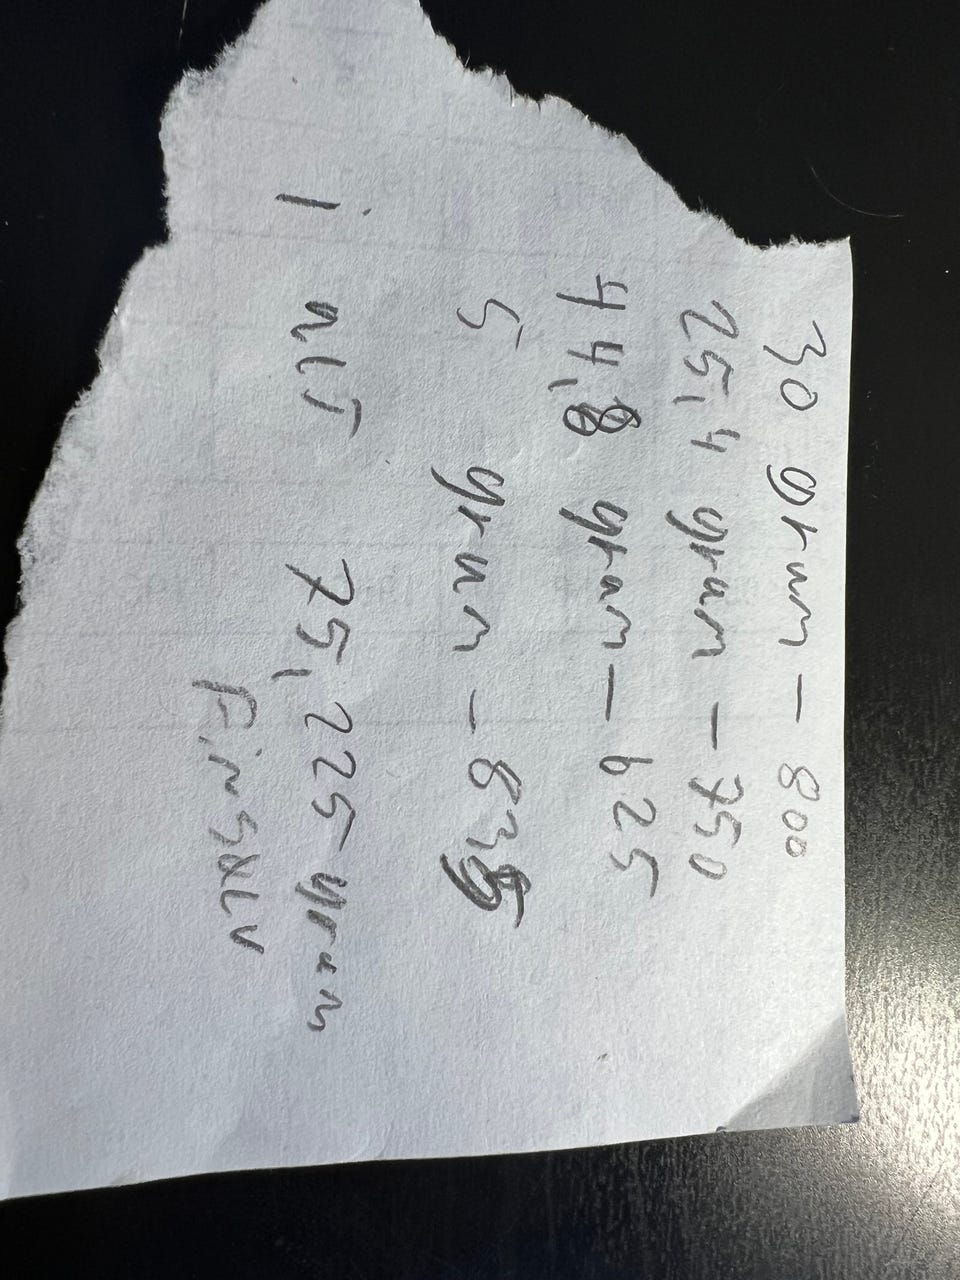 30 gram - 800
25,4 gram - 750
44,8 gram - 625
5 gram - 835
i alt 75,225 gram
Finsølv